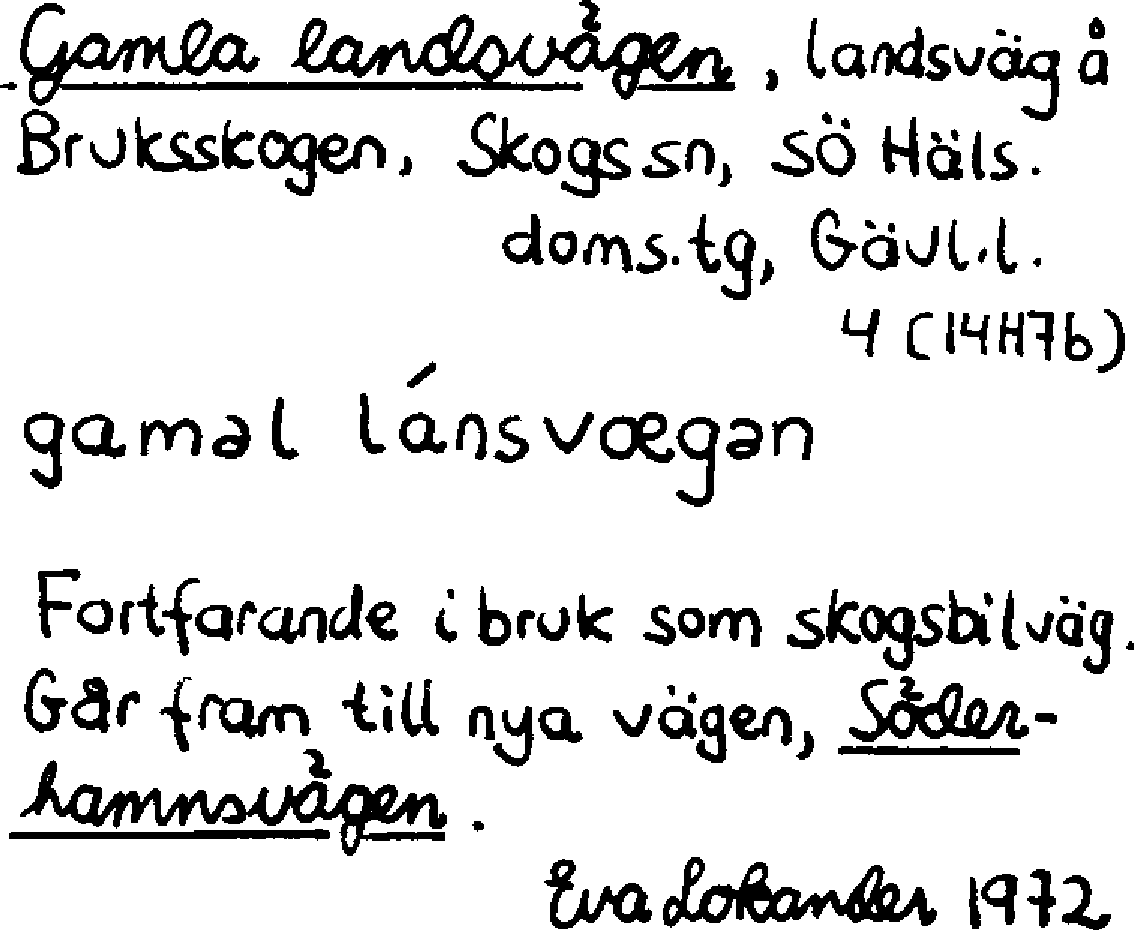 Gamla landsvägen, landsväg å
Bruksskogen, Skogs sn, SÖ Häls.
doms.tg, Gävl.l.
4 (14H7b)
gaməl lánsvægən
Fortfarande i bruk som skogsbilväg.
Går fram till nya vägen, Söder-
hamnsvägen.
Eva Lokander 1972